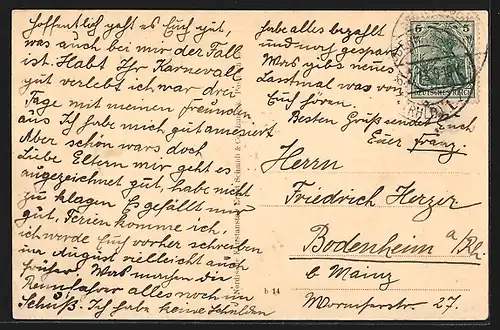 Hoffentlich geht es Euch gut,
was auch bei mir der Fall
ist. Habt Ihr Karnevall
gut verlebt ich war drei
Tage mit meinen Freunden
aus Ich habe mich gut amesiert
Aber schön wars doch
Liebe Eltern mir geht es
ausgezeichnet gut, habe nicht
zu klagen Es gefällt mir
gut, Ferien komme ich,
ich werde Euch vorher schreiben
im August vielleicht auch
früher. Was machen die
Rennfahrer alles noch im
Schuß. Ich habe keine Schulden
habe alles bezahlt
und noch gespart
Was gibs neues
Last mal was von
Euch hören.
Besten Gruß sendet euch
Euer Franz.
5 5
DEUTSCHES REICH
Herrn
Friedrich Herzer
Bodenheim a/Rh
b Mainz
Wormserstr 27.
b 14